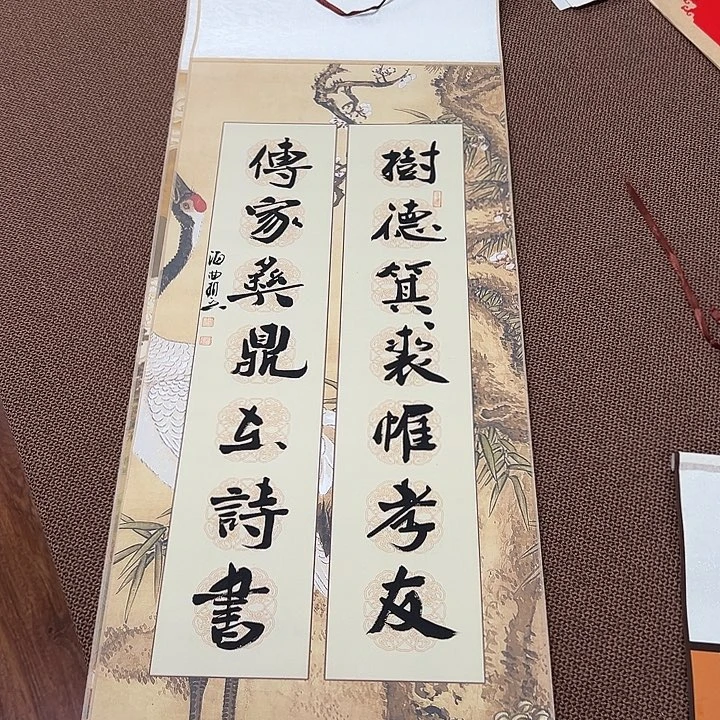 樹德箕裘惟孝友
傳家彝鼎在詩書